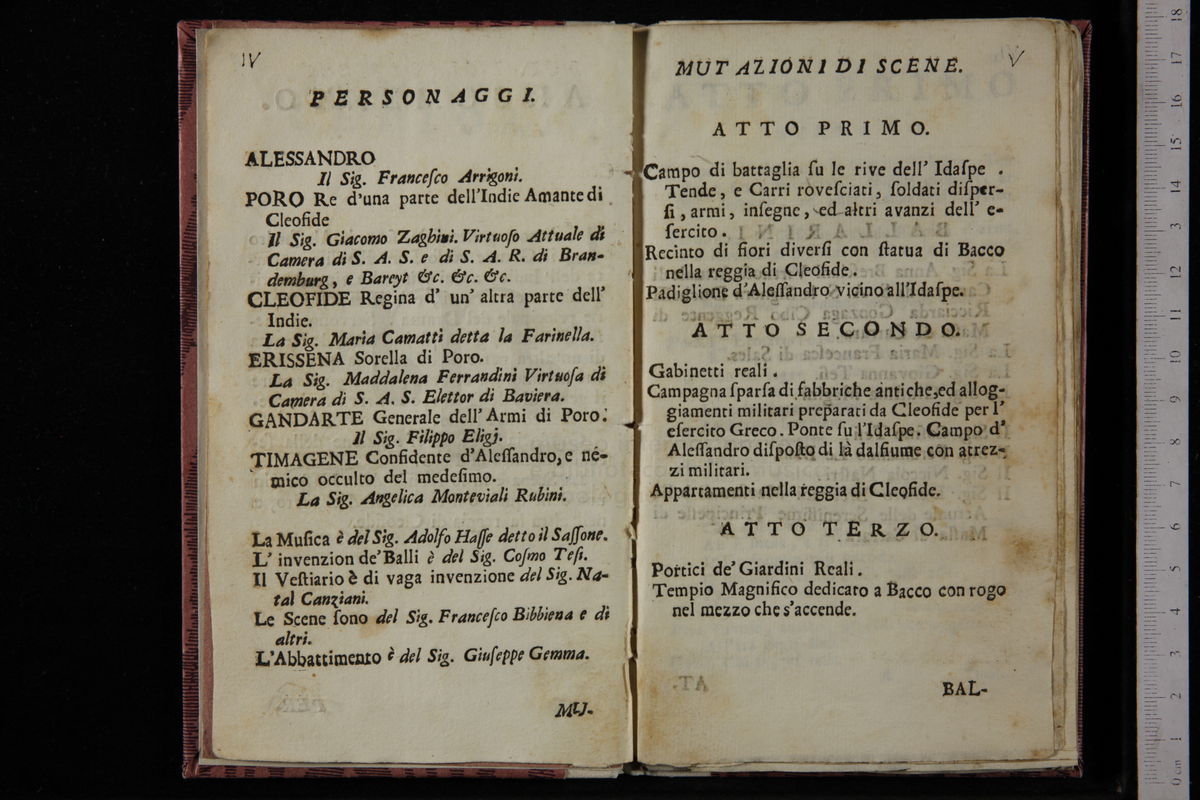 IV
PERSONAGGI.
ALESSANDRO
Il Sig. Franceſco Arrigoni.
PORO Re d'una parte dell'Indie Amante di
Cleofide
Il Sig. Giacomo Zaghini. Virtuoſo Attuale di
Camera di S. A. S. e di S. A. R. di Bran-
demburg, e Bareyt &c. &c. &c.
CLEOFIDE Regina d' un' altra parte dell'
Indie.
La Sig. Maria Camatti detta la Farinella.
ERISSENA Sorella di Poro.
La Sig. Maddalena Ferrandini Virtuoſa di
Camera di S. A. S. Elettor di Baviera.
GANDARTE Generale dell'Armi di Poro.
Il Sig. Filippo Eligj.
TIMAGENE Confidente d'Aleſſandro, e ne-
mico occulto del medeſimo.
La Sig. Angelica Monteviali Rubini.
La Muſica è del Sig. Adolfo Haſſe detto il Saſſone.
L' invenzion de' Balli è del Sig. Coſmo Teſi.
Il Veſtiario è di vaga invenzione del Sig. Na-
tal Canziani.
Le Scene ſono del Sig. Franceſco Bibbiena e di
altri.
L'Abbattimento è del Sig. Giuſeppe Gemma.
MU-
V
MUTAZIONI DI SCENE.
ATTO PRIMO.
Campo di battaglia ſu le rive dell' Idaſpe .
Tende, e Carri roveſciati, ſoldati diſper-
ſi, armi, inſegne, ed altri avanzi dell' e-
ſercito.
Recinto di fiori diverſi con ſtatua di Bacco
nella reggia di Cleofide.
Padiglione d'Aleſſandro vicino all'Idaſpe.
ATTO SECONDO.
Gabinetti reali.
Campagna ſparſa di fabbriche antiche, ed allog-
giamenti militari preparati da Cleofide per l'
eſercito Greco. Ponte ſu l'Idaſpe. Campo d'
Aleſſandro diſpoſto di là dal fiume con atrez-
zi militari.
Appartamenti nella reggia di Cleofide.
ATTO TERZO.
Portici de' Giardini Reali.
Tempio Magnifico dedicato a Bacco con rogo
nel mezzo che s'accende.
BAL-